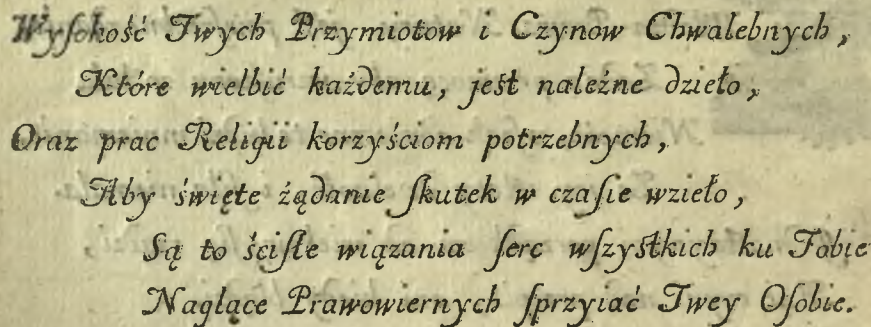 Wyſokość Twych Przymiotow i Czynow Chwalebnych,
Które wielbić każdemu, jeſt należne dzieło,
Oraz prac Religii korzyściom potrzebnych,
Aby święte żądanie ſkutek w czaſie wzieło,
Są to ściſłe wiązania ſerc wſzyſtkich ku Tobie
Naglące Prawowiernych ſprzyiać Twey Oſobie.